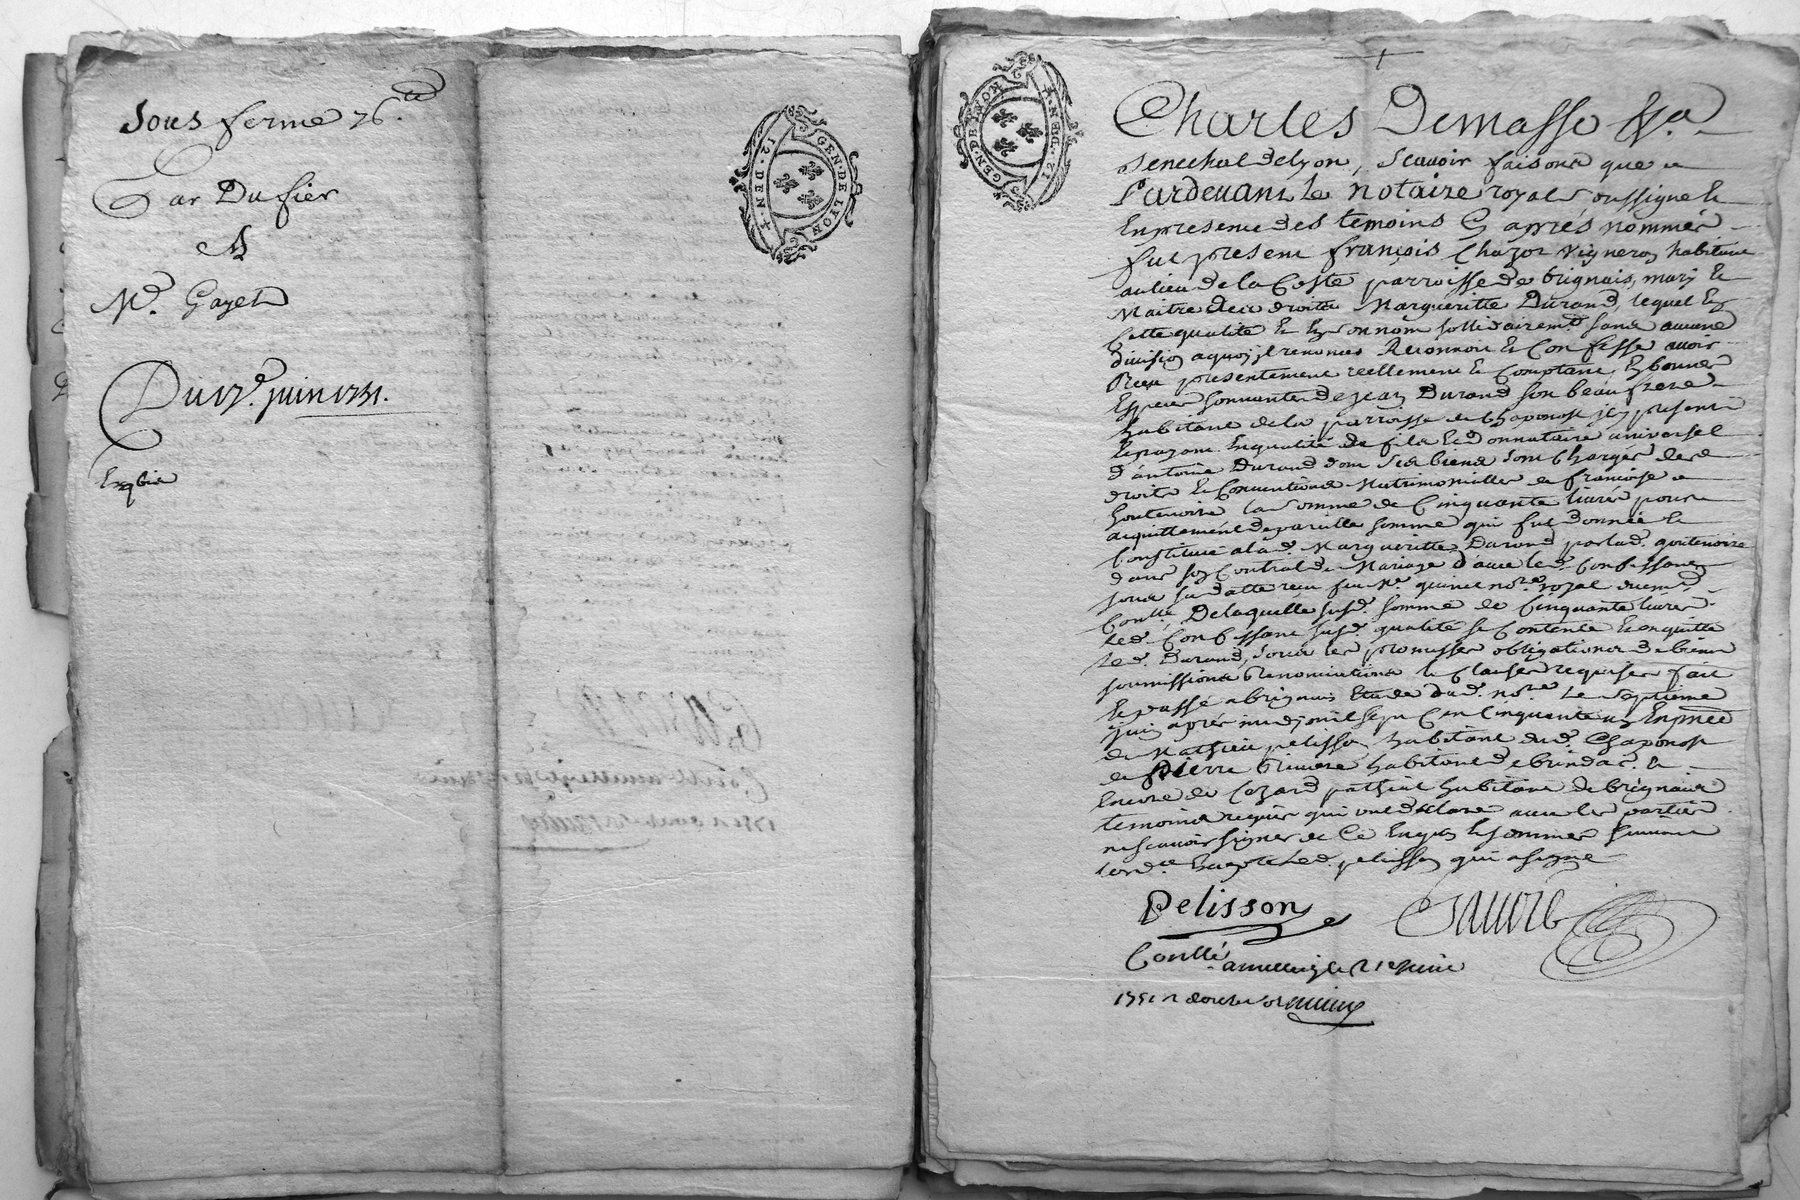 Sous ferme 76.tt
Par Dufier
A
Md. Gayet
Du 17e. juin 1751.
Expbié
12 · DEN · GEN · DE LYON
GEN · DE LYON · 12 · DEN
Charles Demasso &a
Senechal de lyon, Scavoir faisons que
Pardevant Le Notaire royal soussigné Et
En presence des temoins Cy après nommés
fut present françois Chazot vigneron habitant
au lieu de la Coste parroisse de brignais, mary Et
Maitre des droits Margueritte Durand, lequel En
Cette qualité Et En son nom sollidairemt. sans aucune
division a quoy jl renonce Reconnoit Et Confesse avoir
Receu presentement reellement Et Comptant, En bonnes
Especes sonnantes de jean Durand son beau frere
habitant de la parroisse de Chaponost jcy present
Et payant En qualité de fils Et donnataire universel
d'antoine Durand dont Ses biens Sont Charges des
droits Et Conventions Matrimonialles de françoise
Goutenoire la somme de Cinquante livres pour
acquittement de pareille somme qui fut donnée Et
Constituée a lad. Margueritte Durand par lad. goutenoire
dans son Contrat de Mariage d'avec led. Confessant
sous sa datte receu par Me. quinet nore. royal
Conllé, De laquelle susd. somme de Cinquante livres
led. Confessant susd. qualité se Contente Et en quitte
led. Durand, Sous les promesses obligations de biens
soumissions Renonciations Et Clauses requises fait
Et passé a brignais Etude dud. nore. Le septieme
juin après midy mil sept Cent Cinquante un En pnce
de Mathieu pelisson habitant dud. Chaponost
de pierre habitant de brindas, Et
Encore de habitant de brignais
temoins requis qui ont declaré avec les parties
ne scavoir signer de Ce Enquis Et sommés suivant
lordce. Excepté led. pelisson qui a signé
Pelisson
Conllé
a le 21e juin
1751 R douze sols